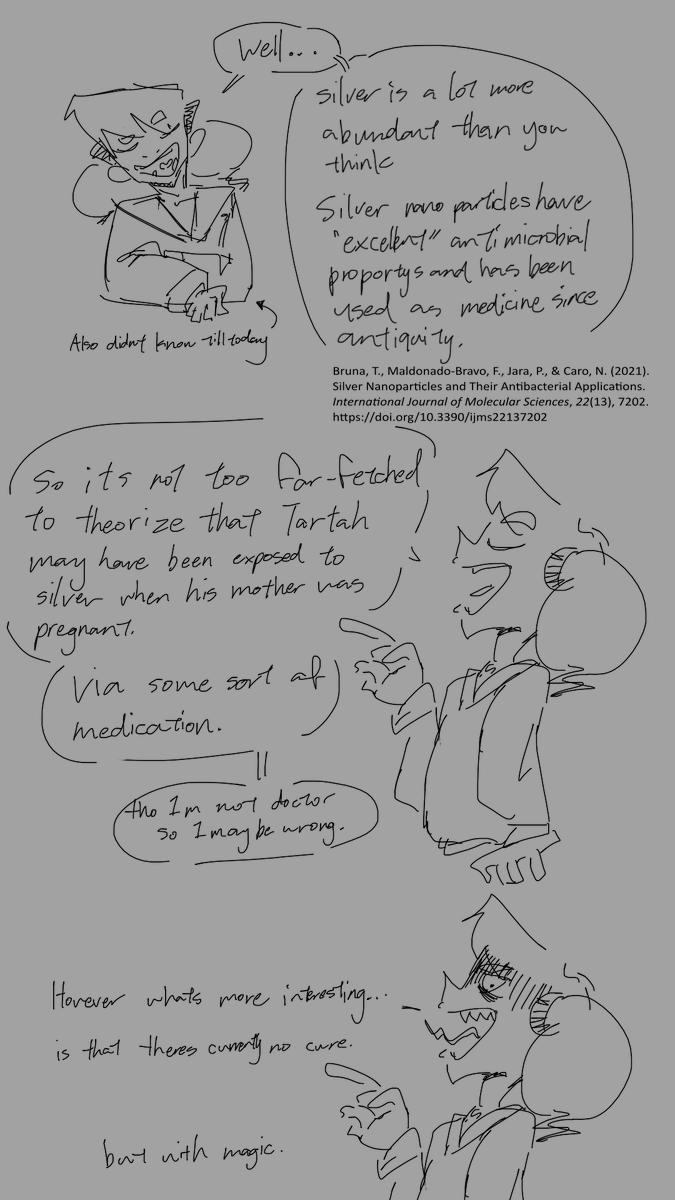 Well...
silver is a lot more
abundant than you
think
Silver nano particles have
"excellent" antimicrobial
proportys and has been
used as medicine since
antiquity.
Also didnt know till today
Bruna, T., Maldonado-Bravo, F., Jara, P., & Caro, N. (2021).
Silver Nanoparticles and Their Antibacterial Applications.
International Journal of Molecular Sciences, 22(13), 7202.
https://doi.org/10.3390/ijms22137202
So its not too far-fetched
to theorize that Tartah
may have been exposed to
silver when his mother was
pregnant.
Via some sort of
medication.
tho Im not doctor
so I may be wrong.
However whats more interesting...
is that theres currently no cure.
but with magic.